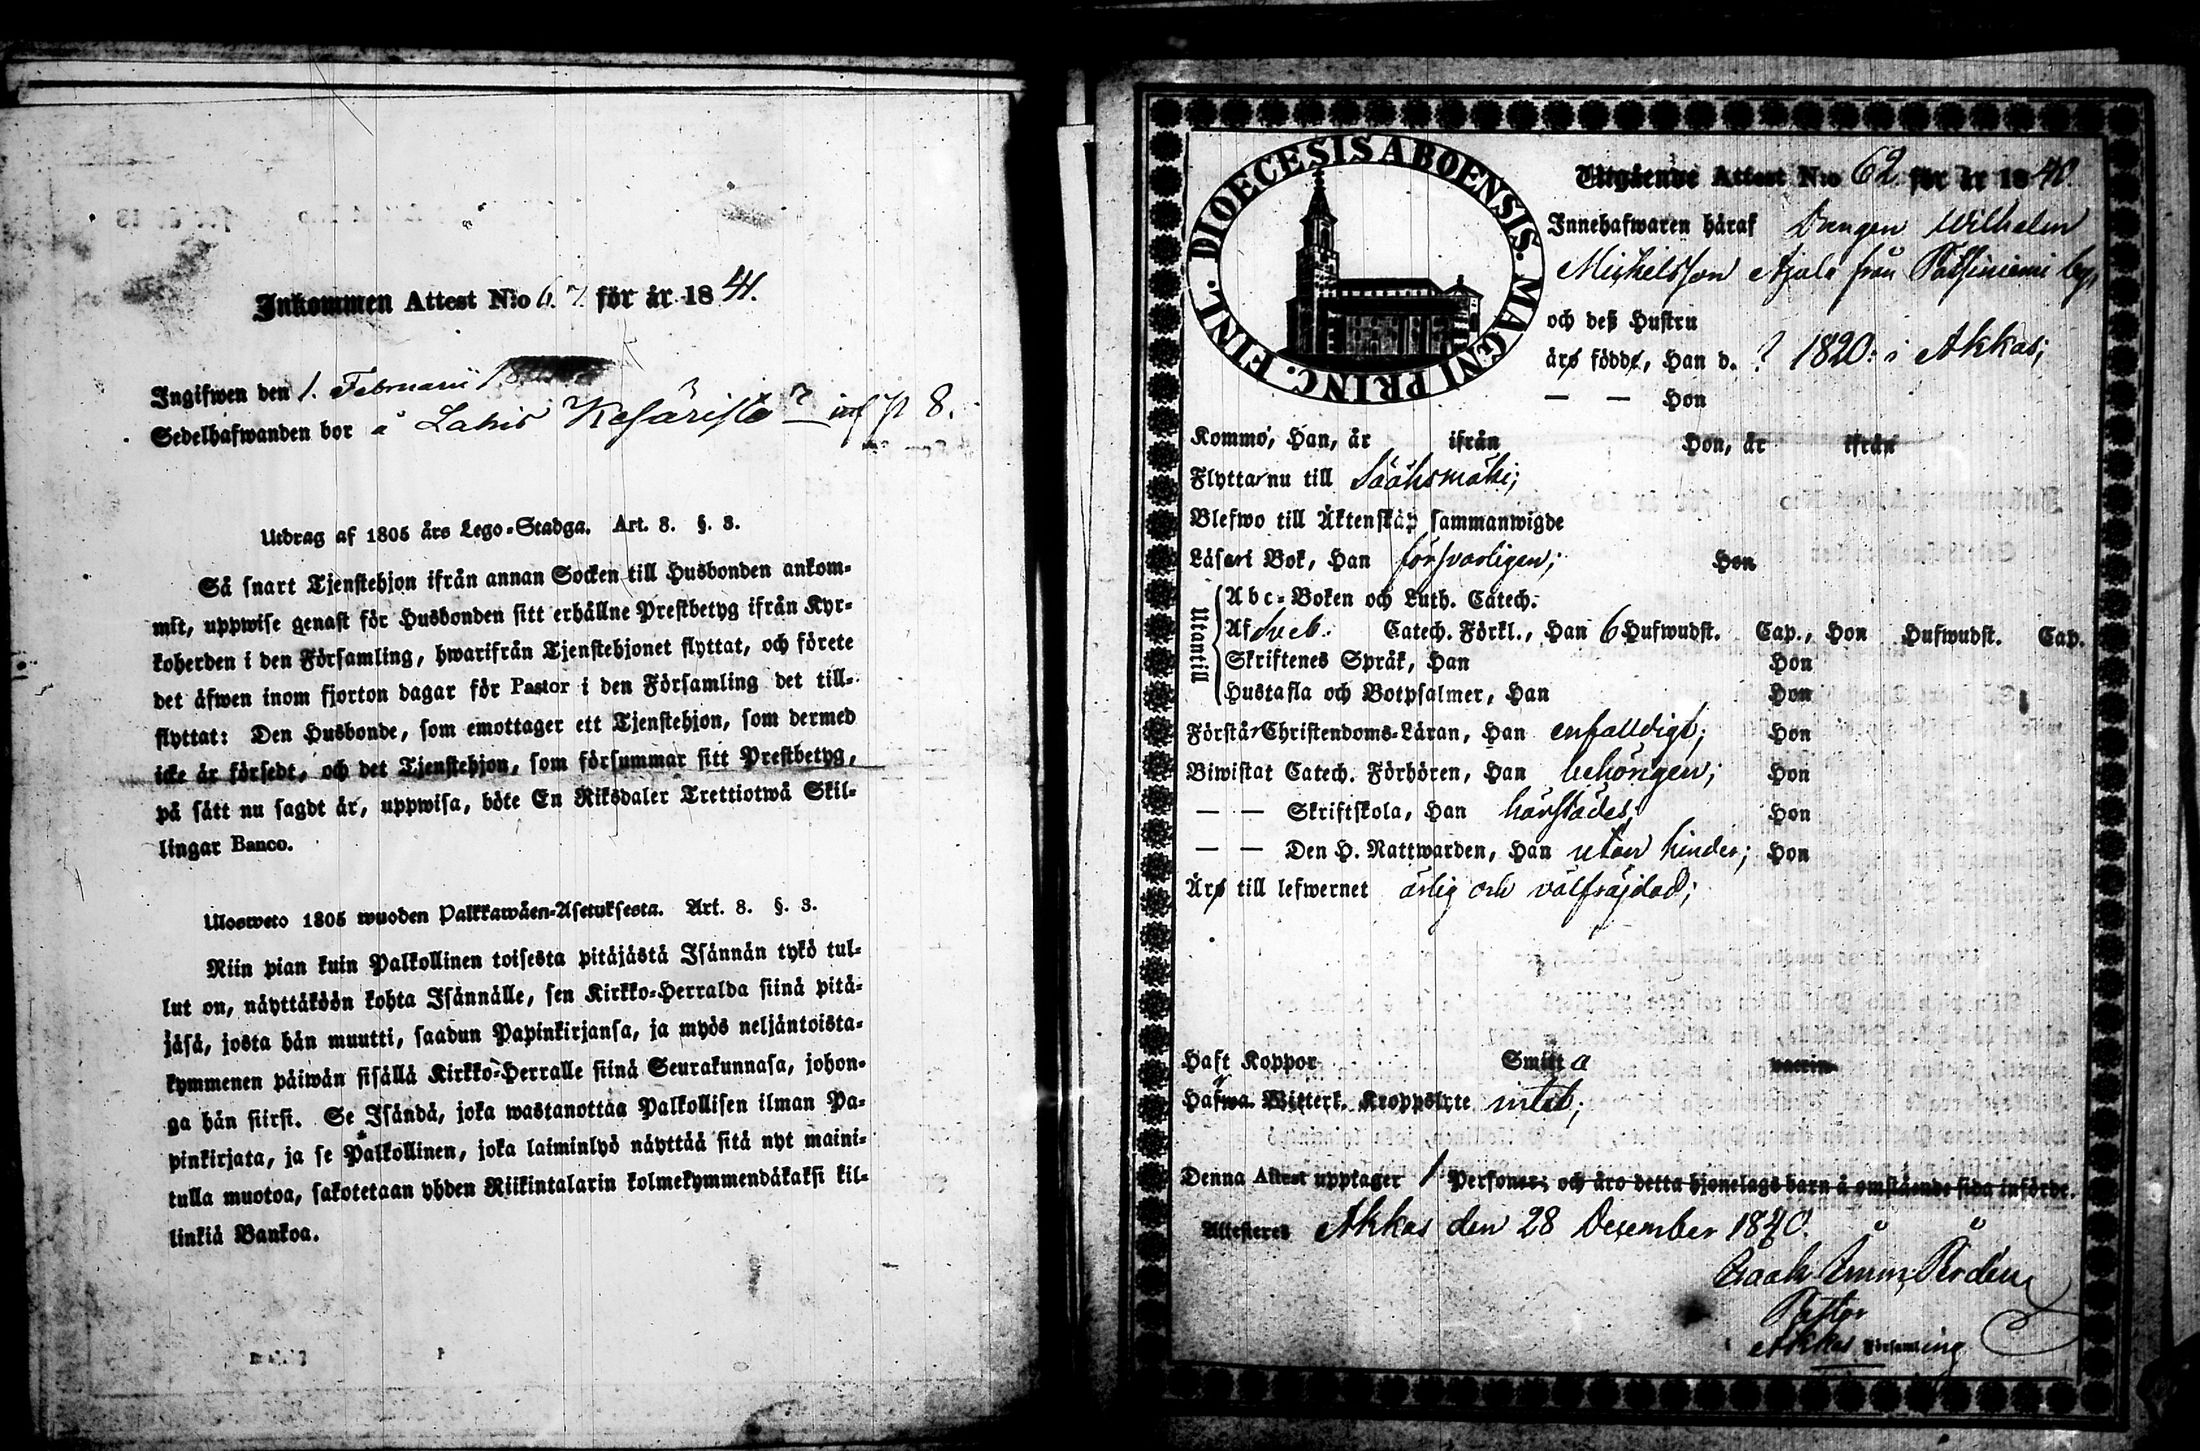 Inkommen Attest N:o 67 för år 1841.
Ingifwen den 1. Februarii
Sedelhafwanden bor å Lahis inf p 8.
Utdrag af 1805 års Lego-Stadga. Art. 8. §. 3.
Så snart Tjenstehjon ifrån annan Socken till Husbonden ankom-
mit, uppwise genast för Husbonden sitt erhållne Prestbetyg ifrån Kyr-
koherden i den Församling, hwarifrån Tjenstehjonet flyttat, och förete
det äfwen inom fjorton dagar för Pastor i den Församling det till-
flyttat: Den Husbonde, som emottager ett Tjenstehjon, som dermed
icke är försedt, och det Tjenstehjon, som försummar sitt Prestbetyg,
på sätt nu sagdt är, uppwisa, böte En Riksdaler Trettiotwå Skil-
lingar Banco.
Ulosweto 1805 wuoden Palkkawäen-Asetuksesta. Art. 8. §. 3.
Niin pian kuin Palkollinen toisesta pitäjästä Isännän tykö tul-
lut on, näyttäköön kohta Isännälle, sen Kirkko-Herralda siinä pitä-
jäsä, josta hän muutti, saadun Papinkirjansa, ja myös neljäntoista-
kymmenen päiwän sisällä Kirkko-Herralle siinä Seurakunnasa, johon-
ga hän siirsi. Se Isändä, joka wastanottaa Palkollisen ilman Pa-
pinkirjata, ja se Palkollinen, joka laiminlyö näyttää sitä nyt maini-
tulla muotoa, sakotetaan yhden Riikintalarin kolmekymmendäkaksi kil-
linkiä Bankoa.
DIOECESIS ABOENSIS. MAGNI PRINC. FINL.
Utgående Attest N:o 62 för år 1840.
Innehafwaren häraf Drengen Wilhelm
Michelsson Ajala från by,
och deß Hustru
äro födde, Han d. ? 1820: i Akkas;
— — Hon
Kommo, Han, år ifrån Hon, år ifrån
Flyttar nu till Sääksmäki;
Blefwo till Äktenskap sammanwigde
Läser i Bok, Han försvarligen; Hon
Utantill
Abc-Boken och Luth. Catech.
Af Sveb. Catech. Förkl., Han 6 Hufwudst. Cap., Hon Hufwudst. Cap.
Skriftenes Språk, Han Hon
Hustafla och Botpsalmer, Han Hon
Förstår Christendoms-Läran, Han enfalldigt; Hon
Biwistat Catech. Förhören, Han behörigen; Hon
— — Skriftskola, Han härstädes; Hon
— — Den H. Nattwarden, Han utan hinder; Hon
Äro till lefwernet ärlig och välfräjdad;
Haft Koppor Smitta vaccin.
Hafwa Witterl. Kroppslyte intet;
Denna Attest upptager 1 Personer; och äro detta hjonelags barn å omstående sida införde.
Attesteres Akkas den 28 December 1840.
Pastor
Akkas Församling